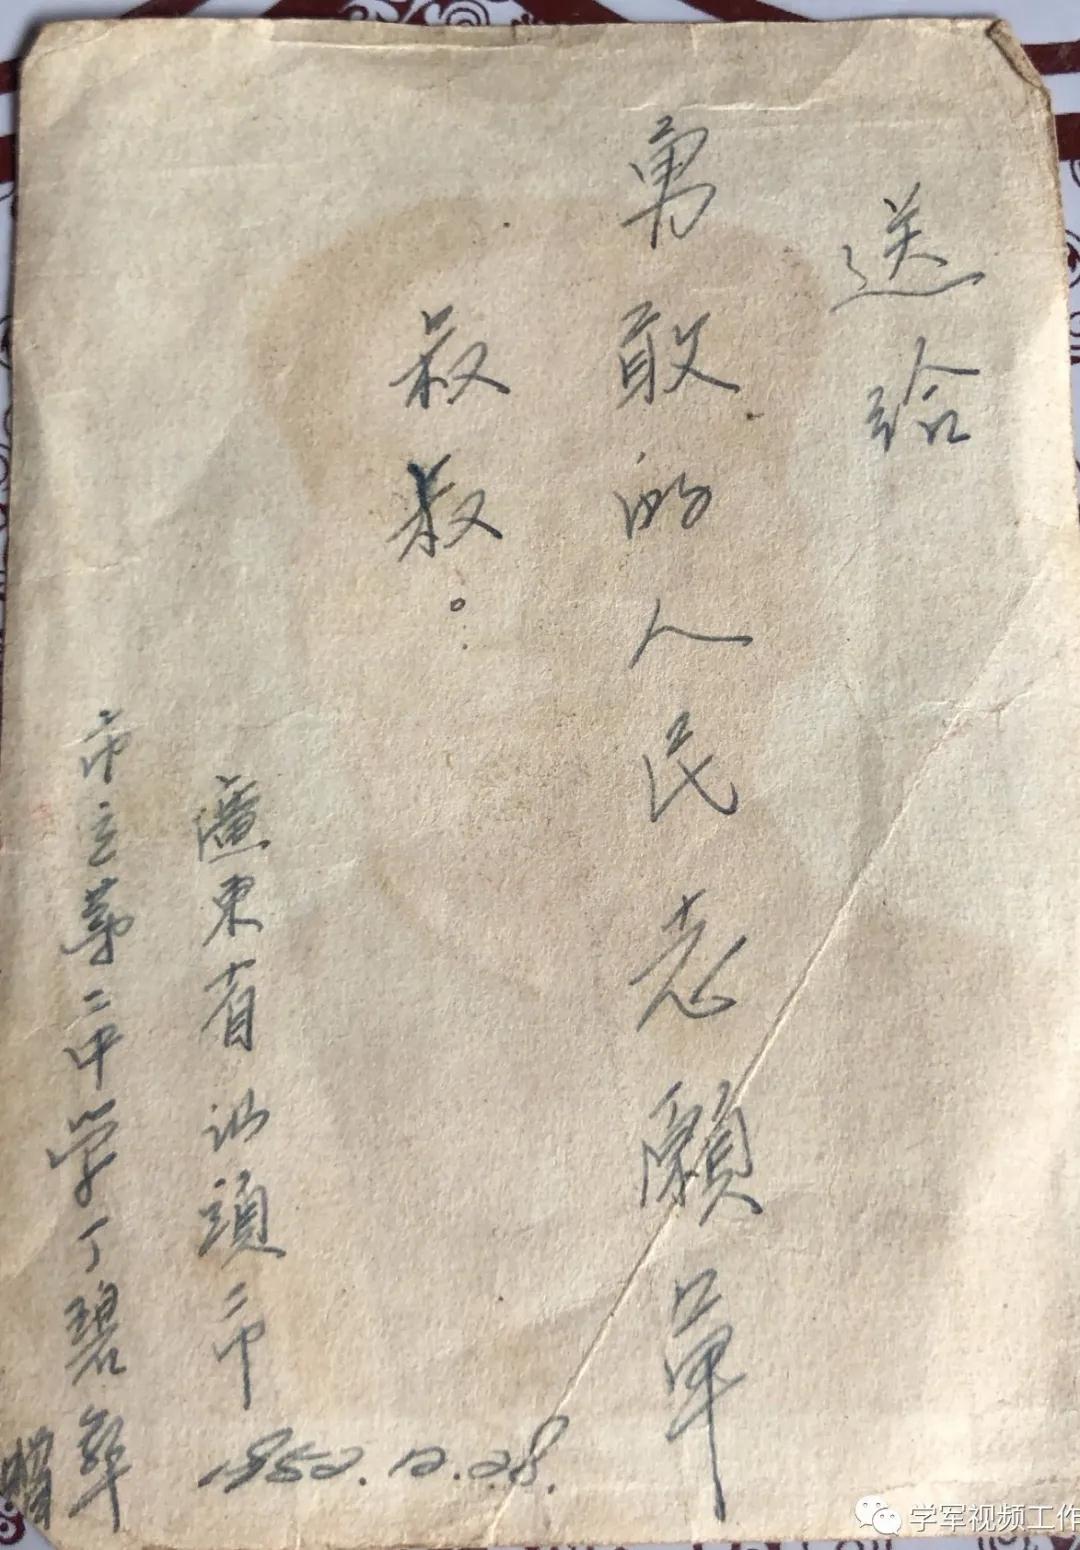 送给
勇敢的人民志願軍
叔叔。
廣東省汕頭市
市立第二中学丁碧
贈
1952.12.28.
学军视频工作